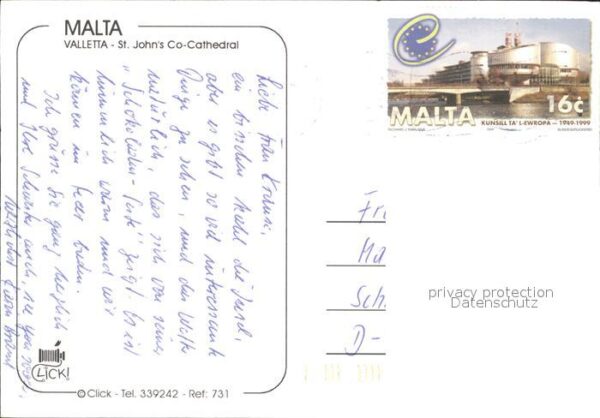 MALTA
VALLETTA - St. John's Co-Cathedral
Liebe Frau Krause,
ein bisschen kahl die Insel,
aber es gibt so viel interessante
Dinge zu sehen, und das Wetter
natürlich, das sich von seiner
"Schokoladen-Seite" zeigt. Es ist
warm und wir
können im Meer baden.
Ich grüsse Sie ganz herzlich
und Ihre auch,
CLICK!
© Click - Tel. 339242 - Ref: 731
MALTA 16c
KUNSILL TA' L-EWROPA - 1949-1999
Fr
Ma
Sch
D-
privacy protection
Datenschutz